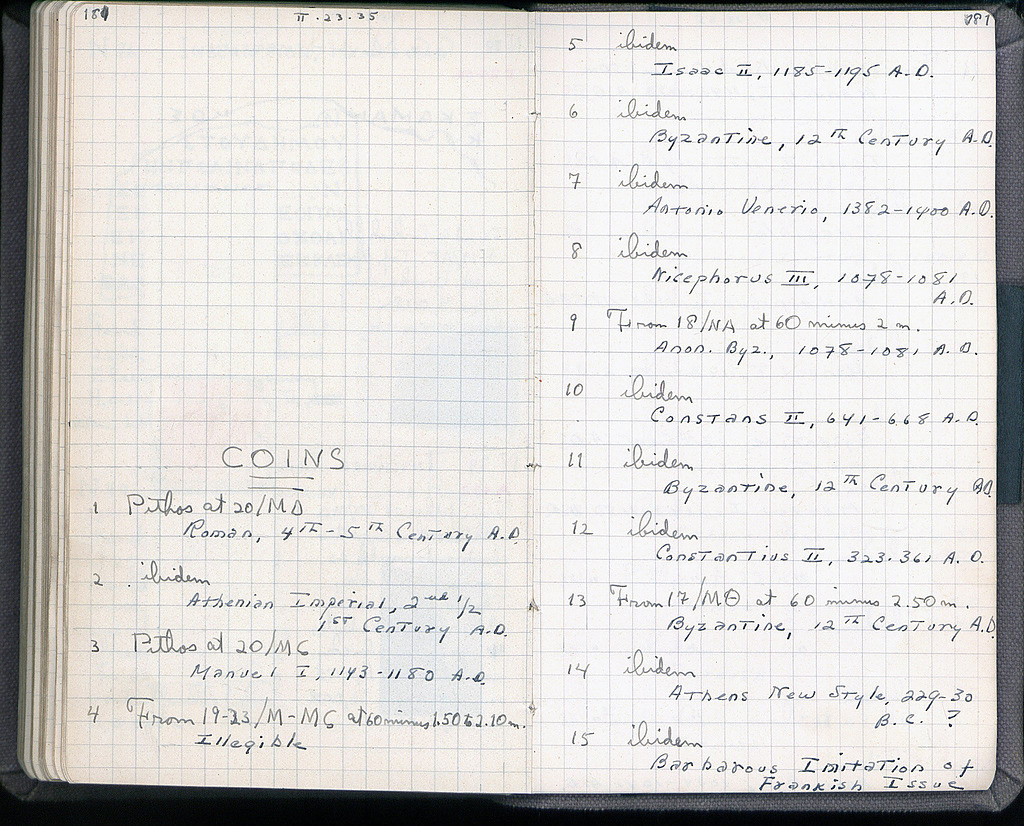 180
II.23.35
COINS
1 Pithos at 20/ΜΔ
Roman, 4TH-5TH Century A.D.
2 ibidem
Athenian Imperial, 2nd 1/2
1ST Century A.D.
3 Pithos at 20/ΜϚ
Manuel I, 1143-1180 A.D.
4 From 19-23/Μ-ΜϚ at 60 minus 1.50 to 2.10 m.
Illegible
181
5 ibidem
Isaac II, 1185-1195 A.D.
6 ibidem
Byzantine, 12TH Century A.D.
7 ibidem
Antonio Venerio, 1382-1400 A.D.
8 ibidem
Nicephorus III, 1078-1081
A.D.
9 From 18/ΝΑ at 60 minus 2 m.
Anon. Byz., 1078-1081 A.D.
10 ibidem
Constans II, 641-668 A.D.
11 ibidem
Byzantine, 12TH Century AD.
12 ibidem
Constantius II, 323-361 A.D.
13 From 17/ΜΘ at 60 minus 2.50 m.
Byzantine, 12TH Century A.D.
14 ibidem
Athens New Style, 229-30
B.C. ?
15 ibidem
Barbarous Imitation of
Frankish Issue